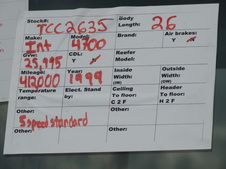 Stock#: TCC2635 Body Length: 26
Make: Int Model: 4700 Brand: Air brakes: Y N
GVW: 25,995 CDL: Y N Reefer Model:
Mileage: 412000 Year: 1999 Inside Width: (IW) Outside Width: (OW)
Temperature range: Elect. Stand by: Ceiling To floor: C 2 F Header To floor: H 2 F
Other: 5 speed standard Other:
Other: Other: